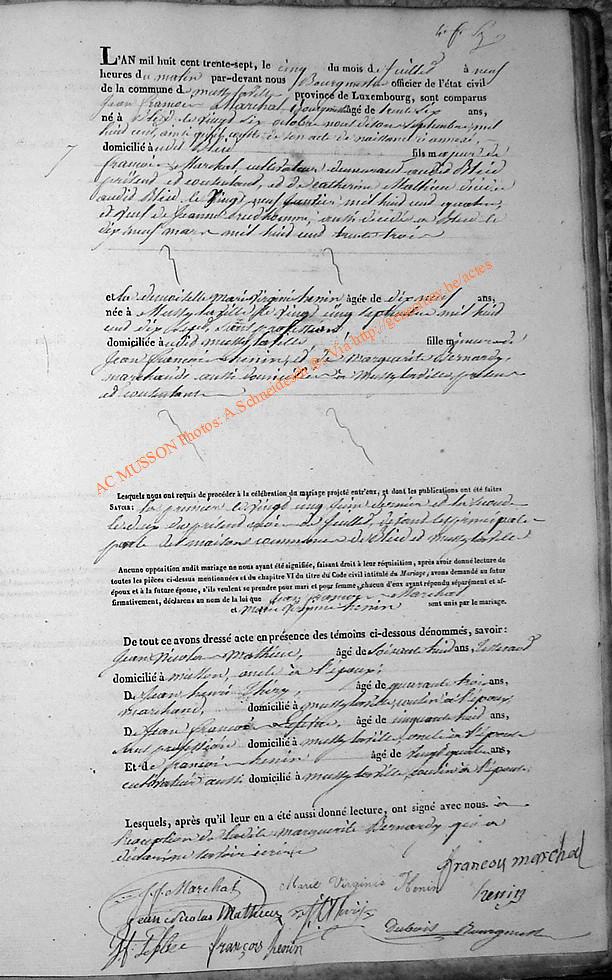 L'AN mil huit cent trente-sept, le cinq du mois de juillet à neuf
heures du matin par-devant nous Bourgmestre officier de l'état civil
de la commune de mussy la ville province de Luxembourg, sont comparus
Jean francois Marchal, âgé de trente six ans,
né à Bleid le vingt six octobre mil
huit cent, ainsi qu'il conste de son acte de naissance ci annexé,
domicilié audit Bleid fils majeur de
francois Marchal, cultivateur demeurant audit Bleid
présent et consentant, et de catherine Mathieu décédée
audit Bleid le vingt neuf janvier mil huit cent quatre,
et veuf de Jeanne prudhomme, aussi décédée a Bleid le
dix neuf mars mil huit cent trente trois
et la demoiselle marie virginie henin âgée de dix neuf ans,
née à Mussy la ville le vingt cinq septembre mil huit
cent dix sept, sans profession
domiciliée audit mussy la ville fille mineure de
Jean francois henin, et de marguerite Bernardy,
marchands aussi domiciliés à mussy la ville, présens
et consentans
Lesquels nous ont requis de procéder à la célébration du mariage projeté entr'eux, et dont les publications ont été faites
SAVOIR: la premiere le vingt cinq juin dernier et la seconde
le deux du présent mois de juillet, devant les principales
portes des maisons communes de Bleid et mussy la ville
Aucune opposition audit mariage ne nous ayant été signifiée, faisant droit à leur réquisition, après avoir donné lecture de
toutes les pièces ci-dessus mentionnées et du chapitre VI du titre du Code civil intitulé du Mariage, avons demandé au futur
époux et à la future épouse, s'ils veulent se prendre pour mari et pour femme, chacun d'eux ayant répondu séparément et af-
firmativement, déclarons au nom de la loi que Jean francois Marchal
et marie virginie henin sont unis par le mariage.
De tout ce avons dressé acte en présence des témoins ci-dessous dénommés, savoir:
Jean Nicolas Mathieu, âgé de soixante huit ans,
domicilié à musson, oncle à l'époux;
De Jean henri Thiry, âgé de quarante trois ans,
marchand, domicilié à mussy la ville, cousin à l'époux;
De Jean francois Lefebvre, âgé de cinquante huit ans,
sans profession domicilié à mussy la ville, oncle à l'épouse
Et de francois henin âgé de vingt quatre ans,
cultivateur aussi domicilié à mussy la ville, cousin à l'épouse
Lesquels, après qu'il leur en a été aussi donné lecture, ont signé avec nous à
l'exception de ladite marguerite Bernardy qui a
déclaré ne savoir écrire
francois marchal
J.f. Marchal Marie Virginie Henin henin
jean nicolas Mathieu
françois henin Dubois Bourgmestre
AC MUSSON Photos: A.Schneidesch ® - Via http://geneanay.be/actes